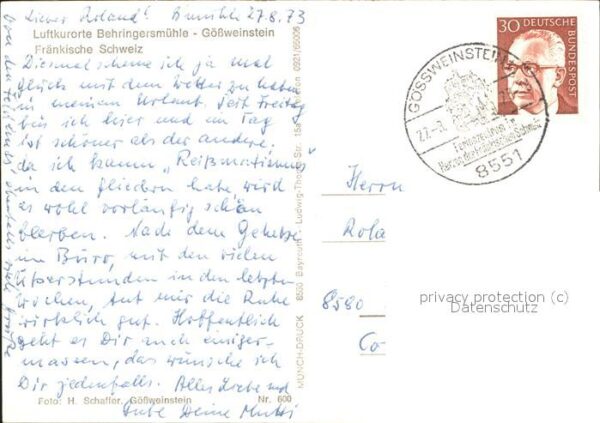 Lieber Roland! 27.8.73
Luftkurorte Behringersmühle - Gößweinstein
Fränkische Schweiz
Diesmal scheine ich ja mal
Glück mit dem Wetter zu haben
in meinem Urlaub. Seit Freitag
bin ich hier und ein Tag
ist schöner als der andere,
da ich kaum „Reißmatismus"
in den Gliedern habe wird
es wohl vorläufig schön
bleiben. Nach dem Gehetze
im Büro, mit den vielen
Überstunden in den letzten
Wochen, tut mir die Ruhe
wirklich gut. Hoffentlich
geht es Dir auch einiger-
massen, das wünsche ich
Dir jedenfalls. Alles Liebe und
Foto: H. Schaffer, Gößweinstein Nr. 600
Gute Deine Mutti
MÜNCH-DRUCK 8580 Bayreuth Ludwig-Thoma-Str.
30 DEUTSCHE
BUNDESPOST
GÖSSWEINSTEIN
8551
Herrn
Rola
8580
Co
privacy protection (c)
Datenschutz